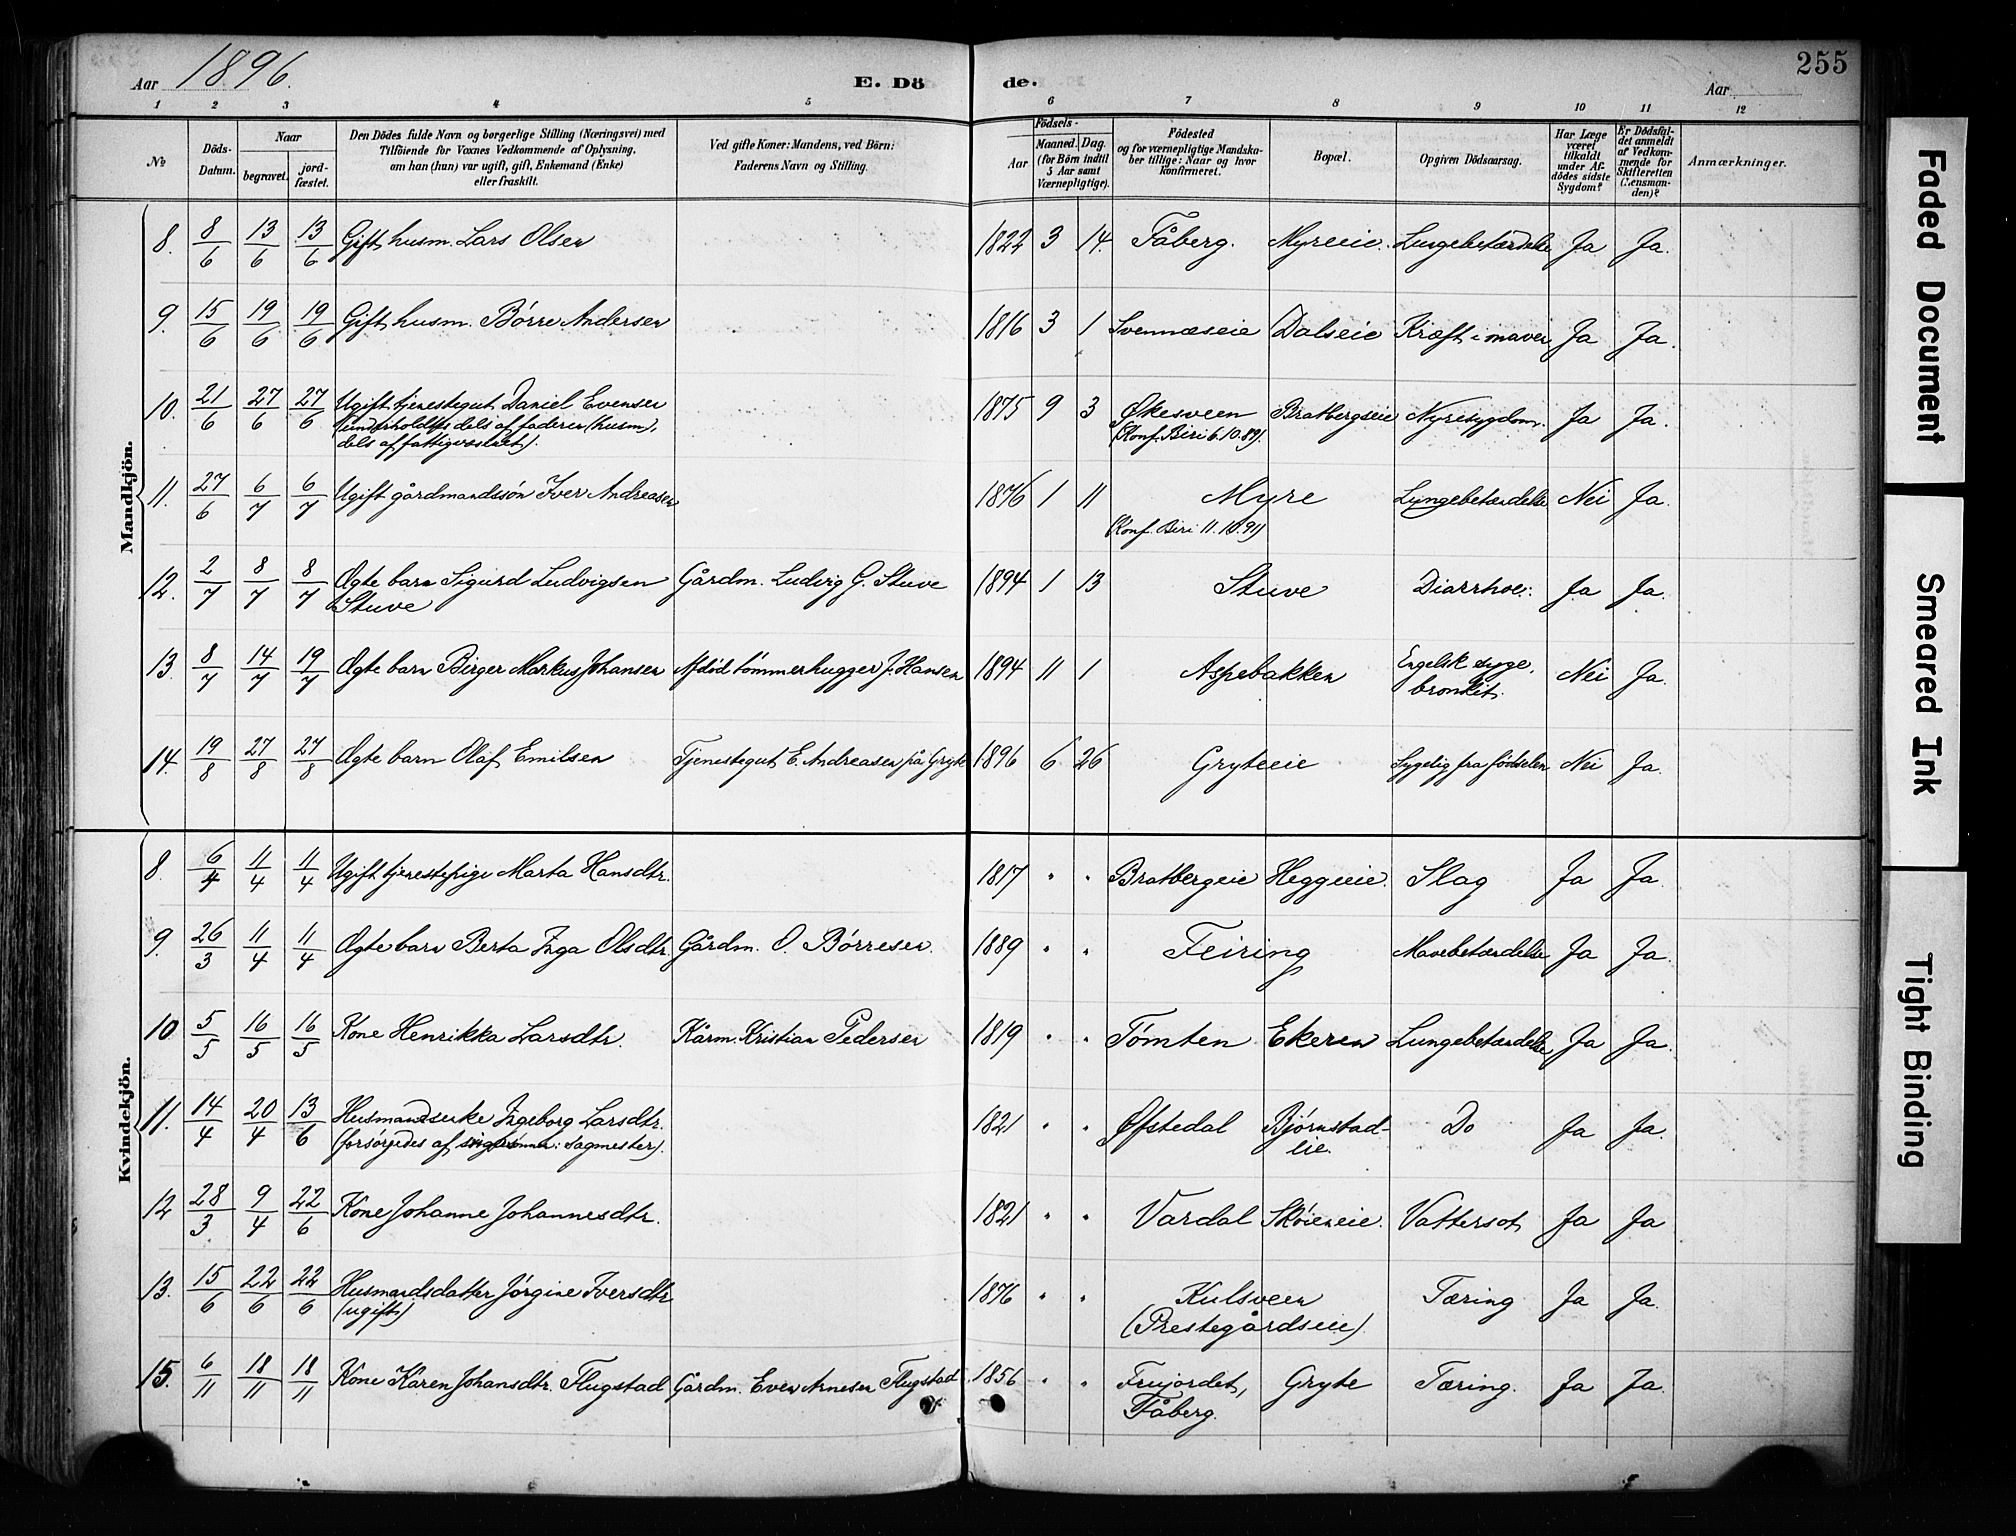 Aar 1896.
E. Döde.
Aar
255
1 2 3 4 5 6 7 8 9 10 11 12
No
Döds-Datum.
Naar
begravet.
jord-fæstet.
Den Dödes fulde Navn og borgerlige Stilling (Næringsvei) med
Tilföiende for Voxnes Vedkommende af Oplysning,
om han (hun) var ugift, gift, Enkemand (Enke)
eller fraskilt.
Ved gifte Koner: Mandens, ved Börn:
Faderens Navn og Stilling.
Födsels-
Aar
Maaned. Dag.
(for Börn indtil
5 Aar samt
Værnepligtige).
Födested
og for værnepligtige Mandska-
ber tillige: Naar og hvor
konfirmeret.
Bopæl.
Opgiven Dödsaarsag.
Har Læge
været
tilkaldt
under Af-
dödes sidste
Sygdom?
Er Dödsfal-
det anmeldt
af Vedkom-
mende for
Skifteretten
(Lensman-
den)?
Anmærkninger.
Mandkjön.
8. 8/6 13/6 13/6 Gift husm. Lars Olsen 1822 3 14. Fåberg. Myreeie. Lungebetændelse Ja Ja.
9. 15/6 19/6 19/6 Gift husm. Börre Andersen 1816 3 1 Svennæseie Dalseie Kræft i maven Ja Ja.
10. 21/6 27/6 27/6 Ugift tjenestegut Daniel Evensen 1875 9 3 Økesveen Bratbergseie Nyresygdom. Ja Ja.
(underholdtes dels af faderen (husm), (Konf. Biri 6.10.89).
dels af fattigvæsenet).
11. 27/6 6/7 6/7 Ugift gårdmandssön Iver Andreasen 1876 1 11 Myre Lungebetændelse Nei Ja.
(Konf. Biri 11.10.91)
12. 2/7 8/7 8/7 Ægte barn Sigurd Ludvigsen Gårdm. Ludvig G. Stuve 1894 1 13 Stuve Diarrhoe. Ja Ja.
Stuve
13. 8/7 14/7 19/7 Ægte barn Birger Markus Johansen Afdöd tömmerhugger J. Hansen 1894 11 1 Aspebakken Engelsk syge, Nei Ja.
bronkit.
14. 19/8 27/8 27/8 Ægte barn Olaf Emilsen Tjenestegut E. Andreasen på Gryte 1896 6 26 Gryteeie Sygelig fra födselen Nei Ja.
Kvindekjön.
8. 6/4 11/4 11/4 Ugift tjenestepige Marta Hansdtr. 1817 " " Bratbergeie Heggeeie. Slag Ja Ja
9. 26/3 11/4 11/4 Ægte barn Berta Inga Olsdtr. Gårdm. O. Börresen. 1889 " " Feiring Mavebetændelse Ja Ja.
10 5/5 16/5 16/5 Kone Henrikka Larsdtr. Kårm. Kristian Pedersen 1819 " " Tömten Ekeren Lungebetændelse Ja Ja.
11. 14/4 20/4 13/6 Husmandsenke Ingeborg Larsdtr. 1821 " " Øfstedal Bjørnstad- Do Ja Ja.
(forsörgedes af svigersönnen: sagmester). eie.
12 28/3 9/4 22/6 Kone Johanne Johannesdtr. 1821 " " Vardal Sköieneie. Vattersot Ja Ja
13. 15/6 22/6 22/6 Husmandsdatter Jörgine Iversdtr 1876 " " Kulsveen Tæring Ja Ja.
(ugift) (Prestegårdseie).
15. 6/11 18/11 18/11 Kone Karen Johansdtr. Flugstad Gårdm. Even Arnesen Flugstad 1856 " " Frujordet, Gryte Tæring. Ja Ja.
Fåberg.
Faded Document
Smeared Ink
Tight Binding